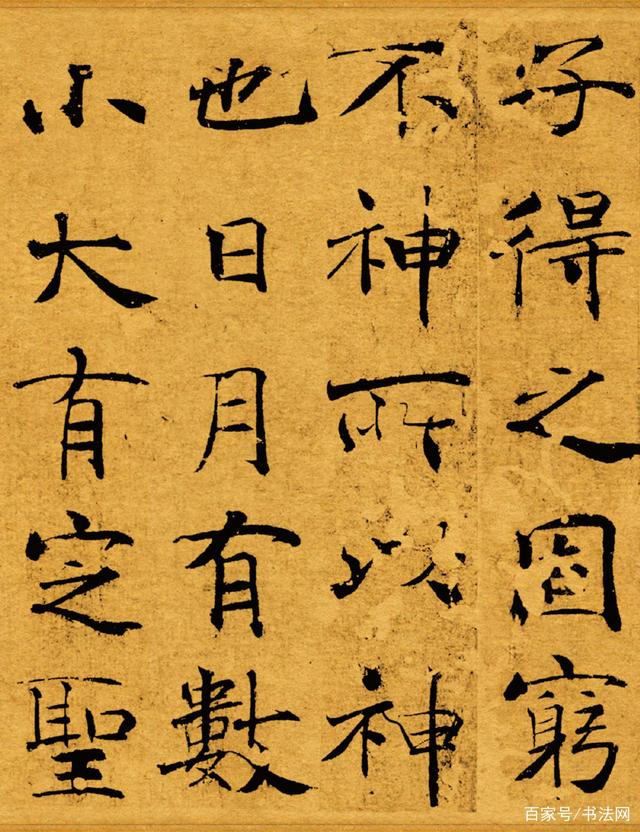 子得之固窮
不神所以神
也日月有數
小大有定聖
百家号/书法网